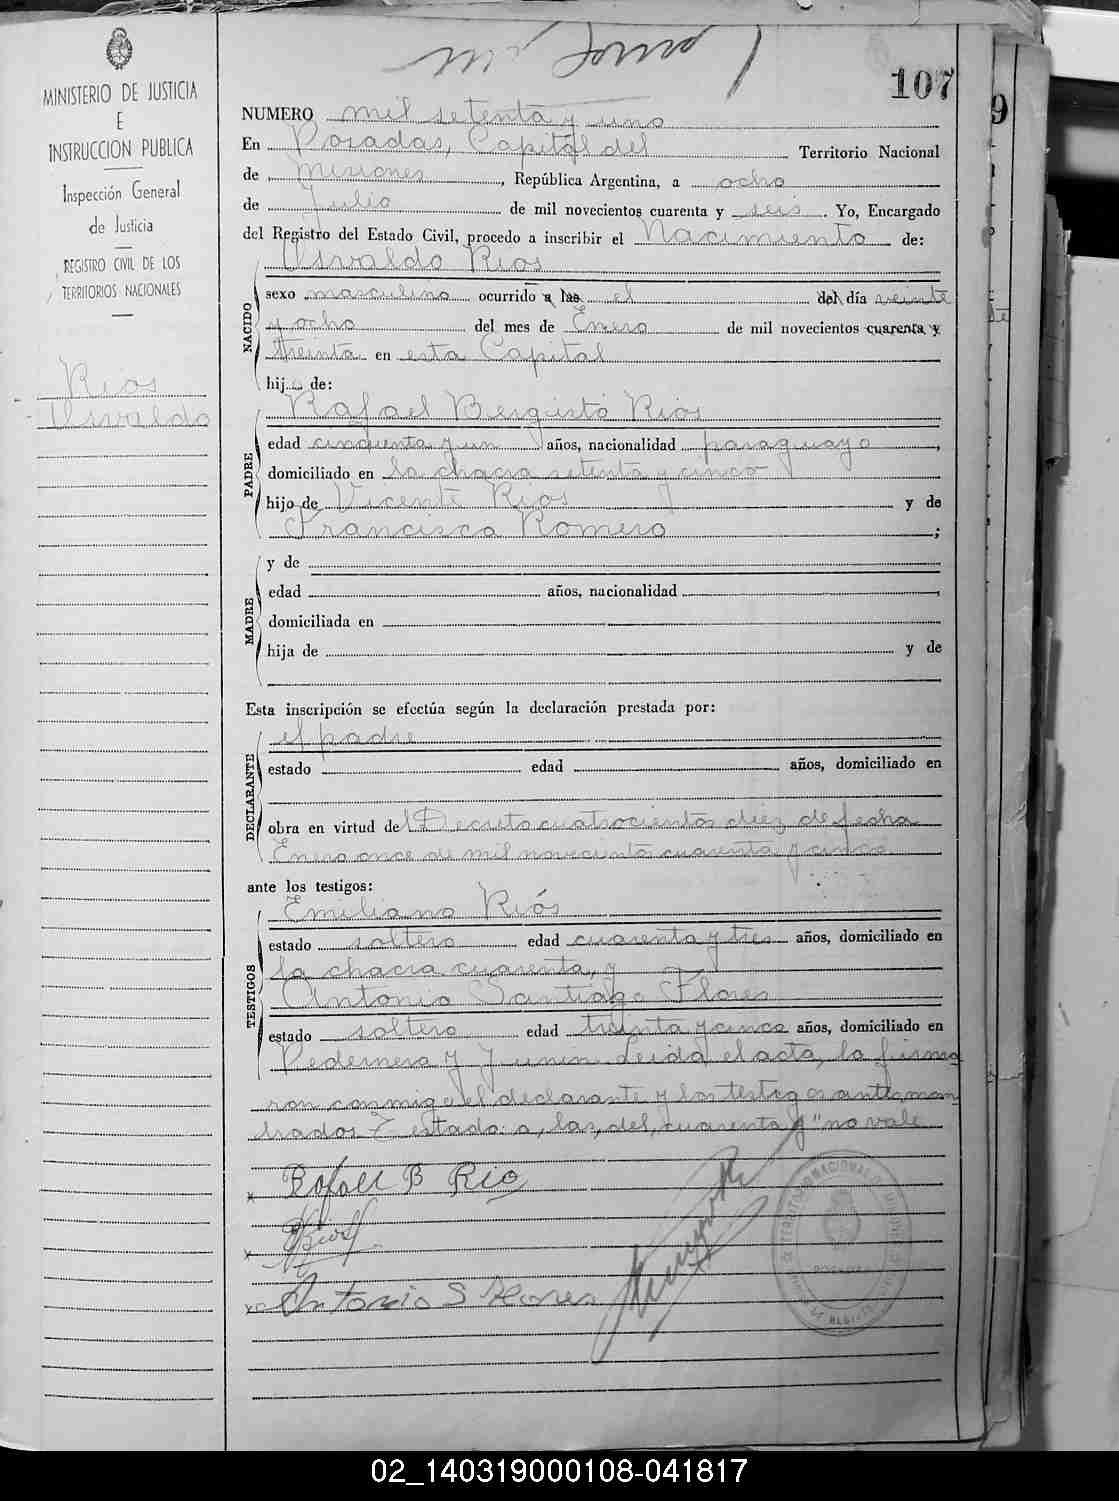 107
MINISTERIO DE JUSTICIA
E
INSTRUCCION PUBLICA
Inspección General
de Justicia
REGISTRO CIVIL DE LOS
TERRITORIOS NACIONALES
Rios
Osvaldo
NUMERO mil setenta y uno
En Posadas, Capital del Territorio Nacional
de Misiones, República Argentina, a ocho
de Julio de mil novecientos cuarenta y seis. Yo, Encargado
del Registro del Estado Civil, procedo a inscribir el Nacimiento de:
NACIDO
Osvaldo Rios
sexo masculino ocurrido a las el del día veinte
y ocho del mes de Enero de mil novecientos cuarenta y
treinta en esta Capital
hijo de:
PADRE
Rafael Bergisto Rios
edad cincuenta y un años, nacionalidad paraguayo,
domiciliado en la chacra setenta y cinco
hijo de Vicente Rios y de
Francisca Romero;
MADRE
y de
edad años, nacionalidad
domiciliada en
hija de y de
Esta inscripción se efectúa según la declaración prestada por:
DECLARANTE
el padre
estado edad años, domiciliado en
obra en virtud del Decreto cuatrocientos diez de fecha
Enero once de mil novecientos cuarenta y cinco
ante los testigos:
TESTIGOS
Emiliano Riós
estado soltero edad cuarenta y tres años, domiciliado en
la chacra cuarenta, y
Antonio Santiago Flores
estado soltero edad treinta y cinco años, domiciliado en
Pedernera y Junin Leida el acta, la firma
ron conmigo el declarante y los testigos antes nom
brados. Testado: a, las, del, cuarenta y "no vale
x Rafael B Rio
x Rios
x Antonio S Flores
POSADAS
02_140319000108-041817